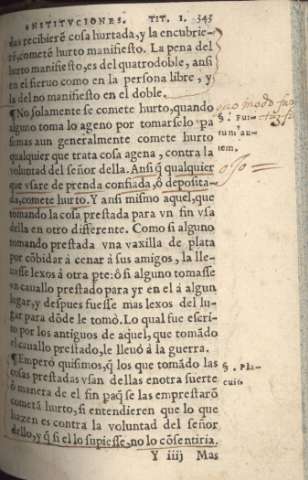 INSTITUCIONES. TIT. I. 345
das recibierē cosa hurtada, y la encubrie-
rē, cometē hurto manifiesto. La pena del
hurto manifiesto, es del quatrodoble, ansi
en el sieruo como en la persona libre, y
la del no manifiesto en el doble.
¶No solamente se comete hurto, quando
alguno toma lo ageno por tomarselo pa
si mas aun generalmente comete hurto
qualquier que trata cosa agena, contra la
voluntad del señor della. Ansi q̄ qualquier
que vsare de prenda confiada, ó deposita-
da, comete hurto. Y ansi mismo aquel, que
tomando la cosa prestada para vn fin vsa
della en otro differente. Como si alguno
tomando prestada vna vaxilla de plata
por cōbidar á cenar á sus amigos, la lle-
uasse lexos á otra pte: ô si alguno tomasse
vn cauallo prestado para yr en el á algun
lugar, y despues fuesse mas lexos del lu-
gar para dōde le tomò. Lo qual fue escri-
to por los antiguos de aquel, que tomādo
el cauallo prestado, le lleuó à la guerra.
¶Emperò quisimos, q̄ los que tomādo las
cosas prestadas vsan dellas en otra suerte
ò manera de el fin paq̄ se las emprestarō
cometā hurto, si entendieren que lo que
hazen es contra la voluntad del señor
dello, y q̄ si el lo supiesse, no lo cōsentiria.
Y iiij Mas
otro modo
§. Fur-
tum au-
tem.
ojo
§. Pla-
cuit.